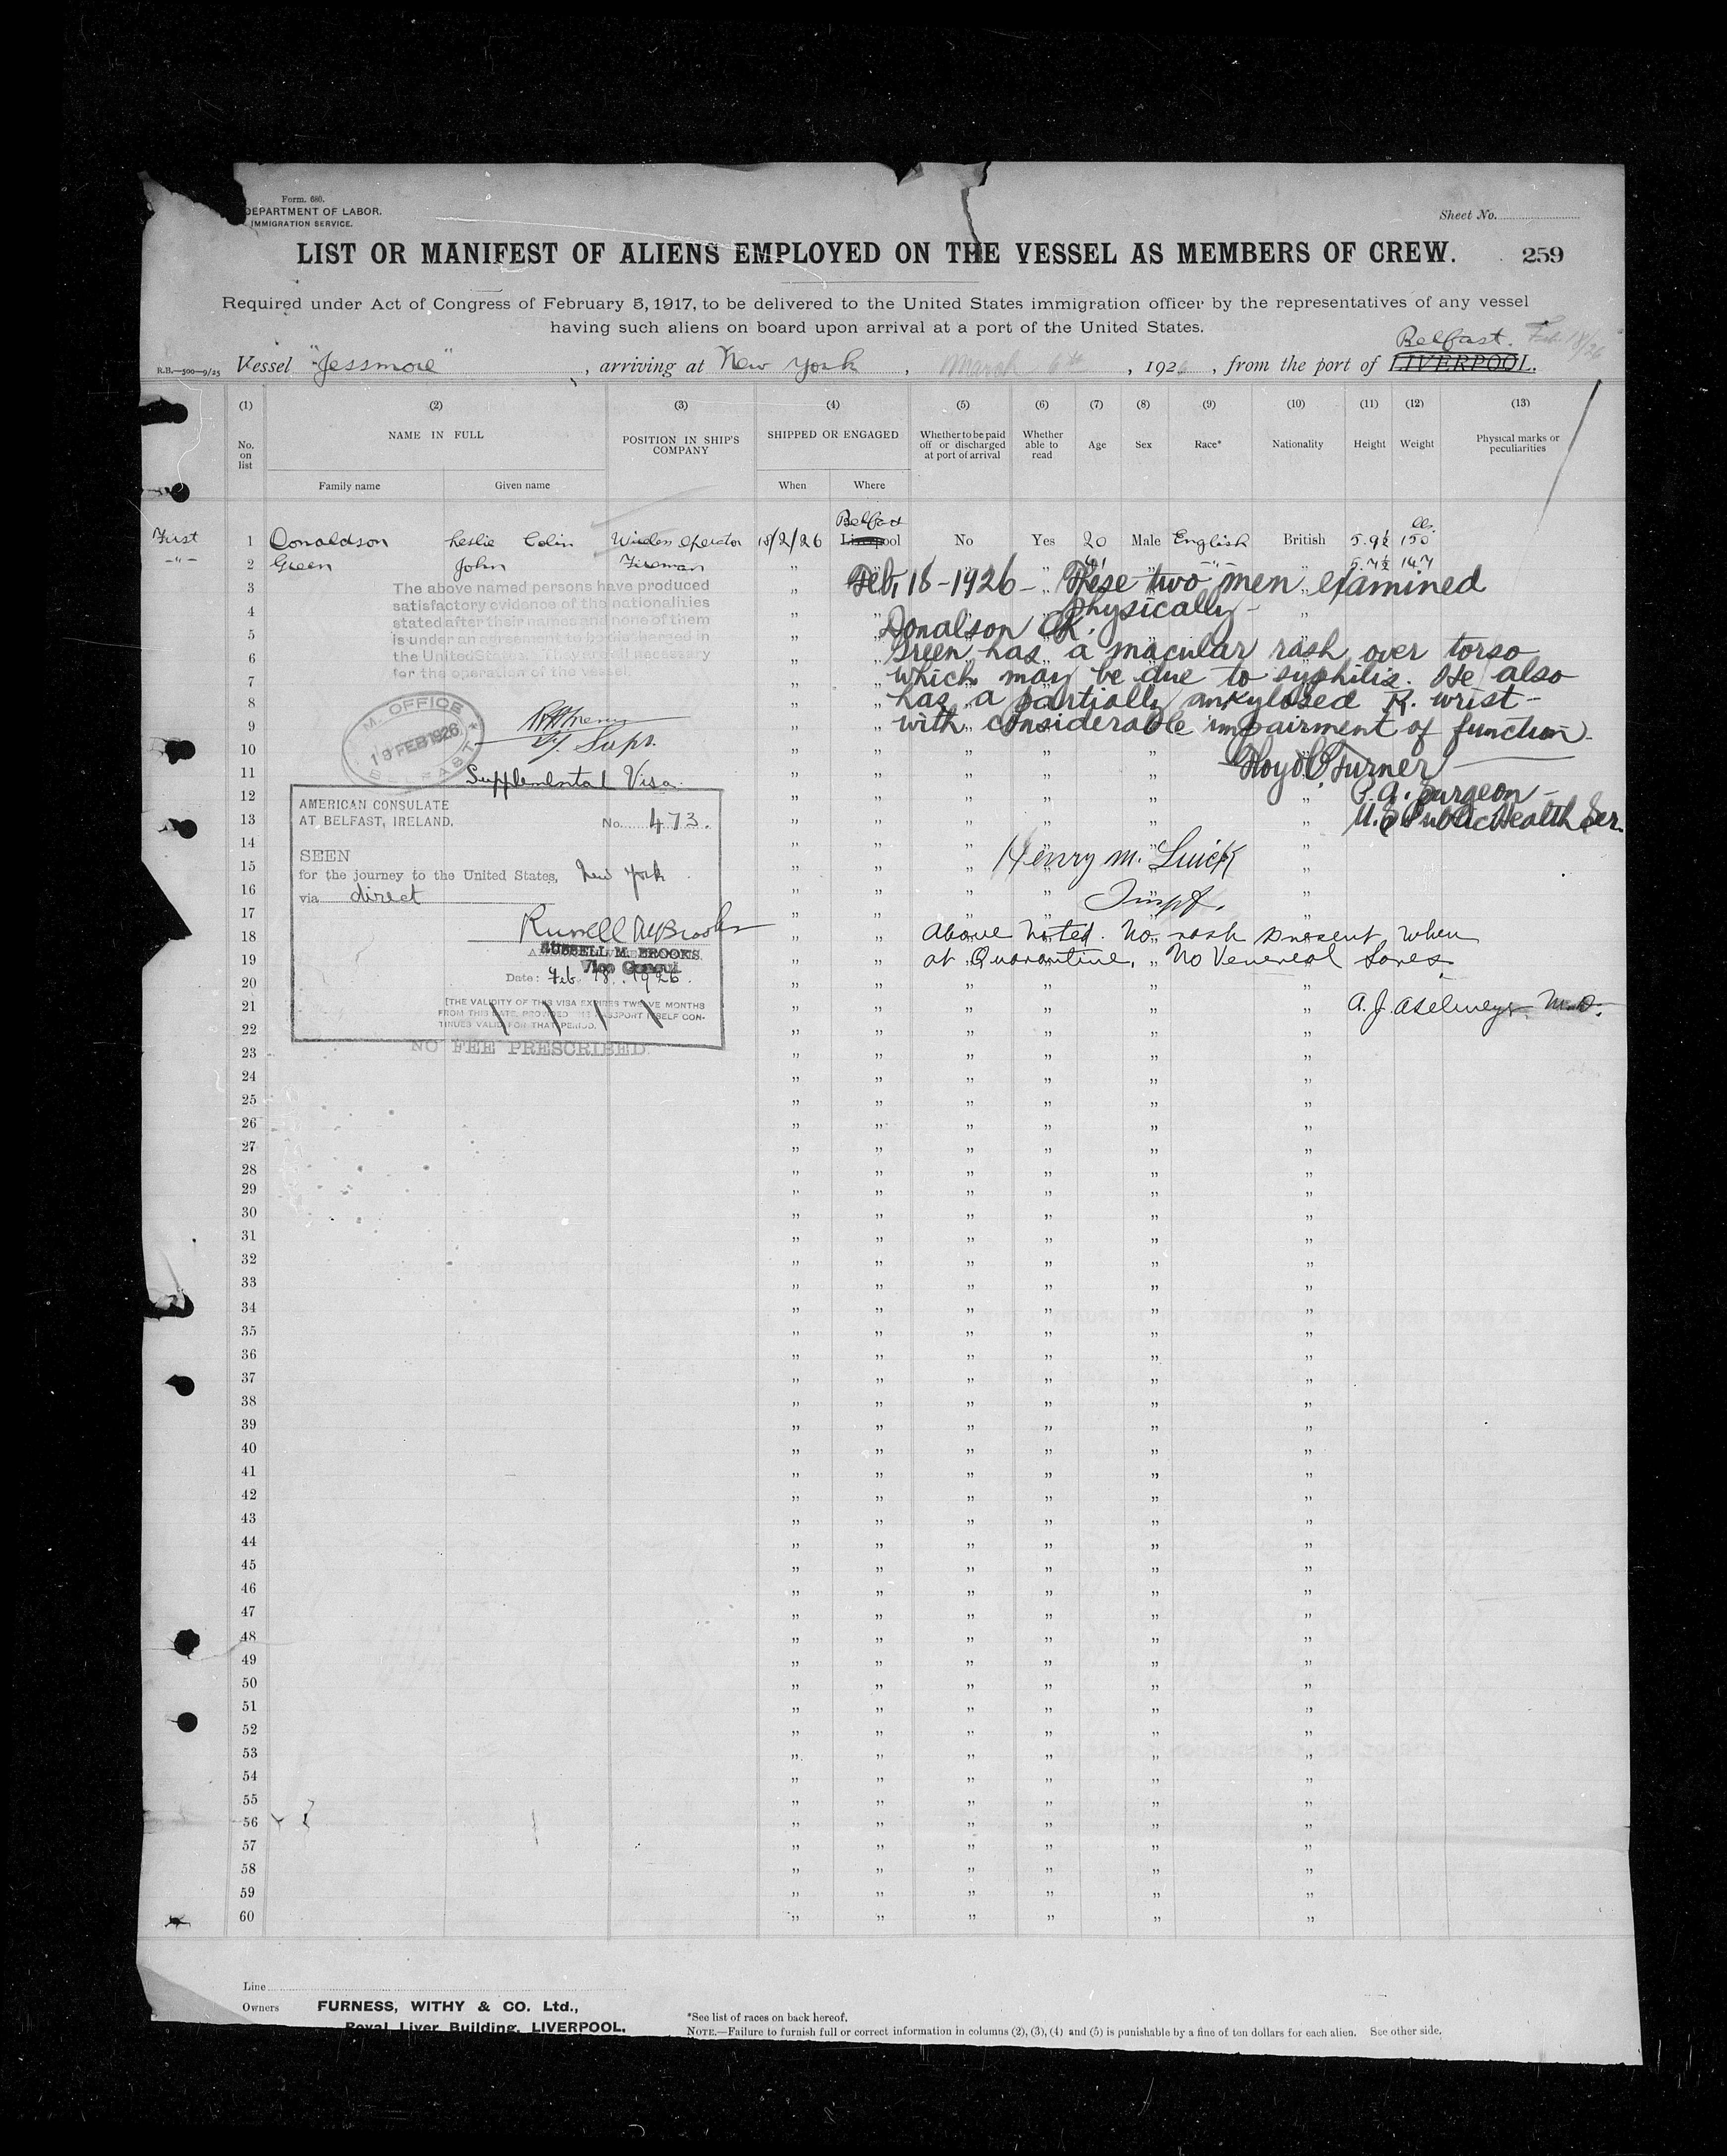 Form. 680.
DEPARTMENT OF LABOR.
IMMIGRATION SERVICE.
Sheet No.
LIST OR MANIFEST OF ALIENS EMPLOYED ON THE VESSEL AS MEMBERS OF CREW.
259
Required under Act of Congress of February 5, 1917, to be delivered to the United States immigration officer by the representatives of any vessel
having such aliens on board upon arrival at a port of the United States.
Belfast. Feb 18/26
R.B.—500—9/25 Vessel "Jessmore", arriving at New York, March 6th, 1926, from the port of LIVERPOOL.
(1) (2) (3) (4) (5) (6) (7) (8) (9) (10) (11) (12) (13)
No. on list
NAME IN FULL
Family name Given name
POSITION IN SHIP'S COMPANY
SHIPPED OR ENGAGED
When Where
Whether to be paid off or discharged at port of arrival
Whether able to read
Age Sex Race* Nationality Height Weight
Physical marks or peculiarities
Belfast lbs.
First 1 Donaldson Leslie Colin Wireless Operator 18/2/26 Liverpool No Yes 20 Male English British 5.9½ 150
-"- 2 Green John Fireman " " " " " -"- " 5.7½ 147
3 The above named persons have produced
satisfactory evidence of the nationalities
4 stated after their names and none of them
5 is under an agreement to be discharged in
6 the United States. They are all necessary
7 for the operation of the vessel.
Feb, 18-1926- These two men examined
physically-
Donalson OK.
Green has a macular rash over torso
which may be due to syphilis. He also
has a partially ankylosed R. wrist-
with considerable impairment of function-
8
9
10
11
M. OFFICE
18 FEB 1926
BELFAST
Supt.
Supplemental Visa.
Floyd C Turner
P.A. Surgeon-
U.S. Public Health Ser.
12 AMERICAN CONSULATE
13 AT BELFAST, IRELAND. No. 473.
14 SEEN
15 for the journey to the United States, New York
16 via direct
17 Russell M Brooks
18 RUSSELL M. BROOKS
19 Vice Consul
20 Date: Feb. 18. 1926.
21 [THE VALIDITY OF THIS VISA EXPIRES TWELVE MONTHS
FROM THIS DATE, PROVIDED THE PASSPORT ITSELF CON-
22 TINUES VALID FOR THAT PERIOD.
23 NO FEE PRESCRIBED.
Henry M. Luick
Inspt.
Above noted. No rash present when
at Quarantine, No Venereal Sores.
A. J. Aselmeyer M.D.
24
25
26
27
28
29
30
31
32
33
34
35
36
37
38
39
40
41
42
43
44
45
46
47
48
49
50
51
52
53
54
55
56
57
58
59
60
Line
Owners FURNESS, WITHY & CO. Ltd.,
Royal Liver Building, LIVERPOOL.
*See list of races on back hereof.
NOTE.—Failure to furnish full or correct information in columns (2), (3), (4) and (5) is punishable by a fine of ten dollars for each alien. See other side.